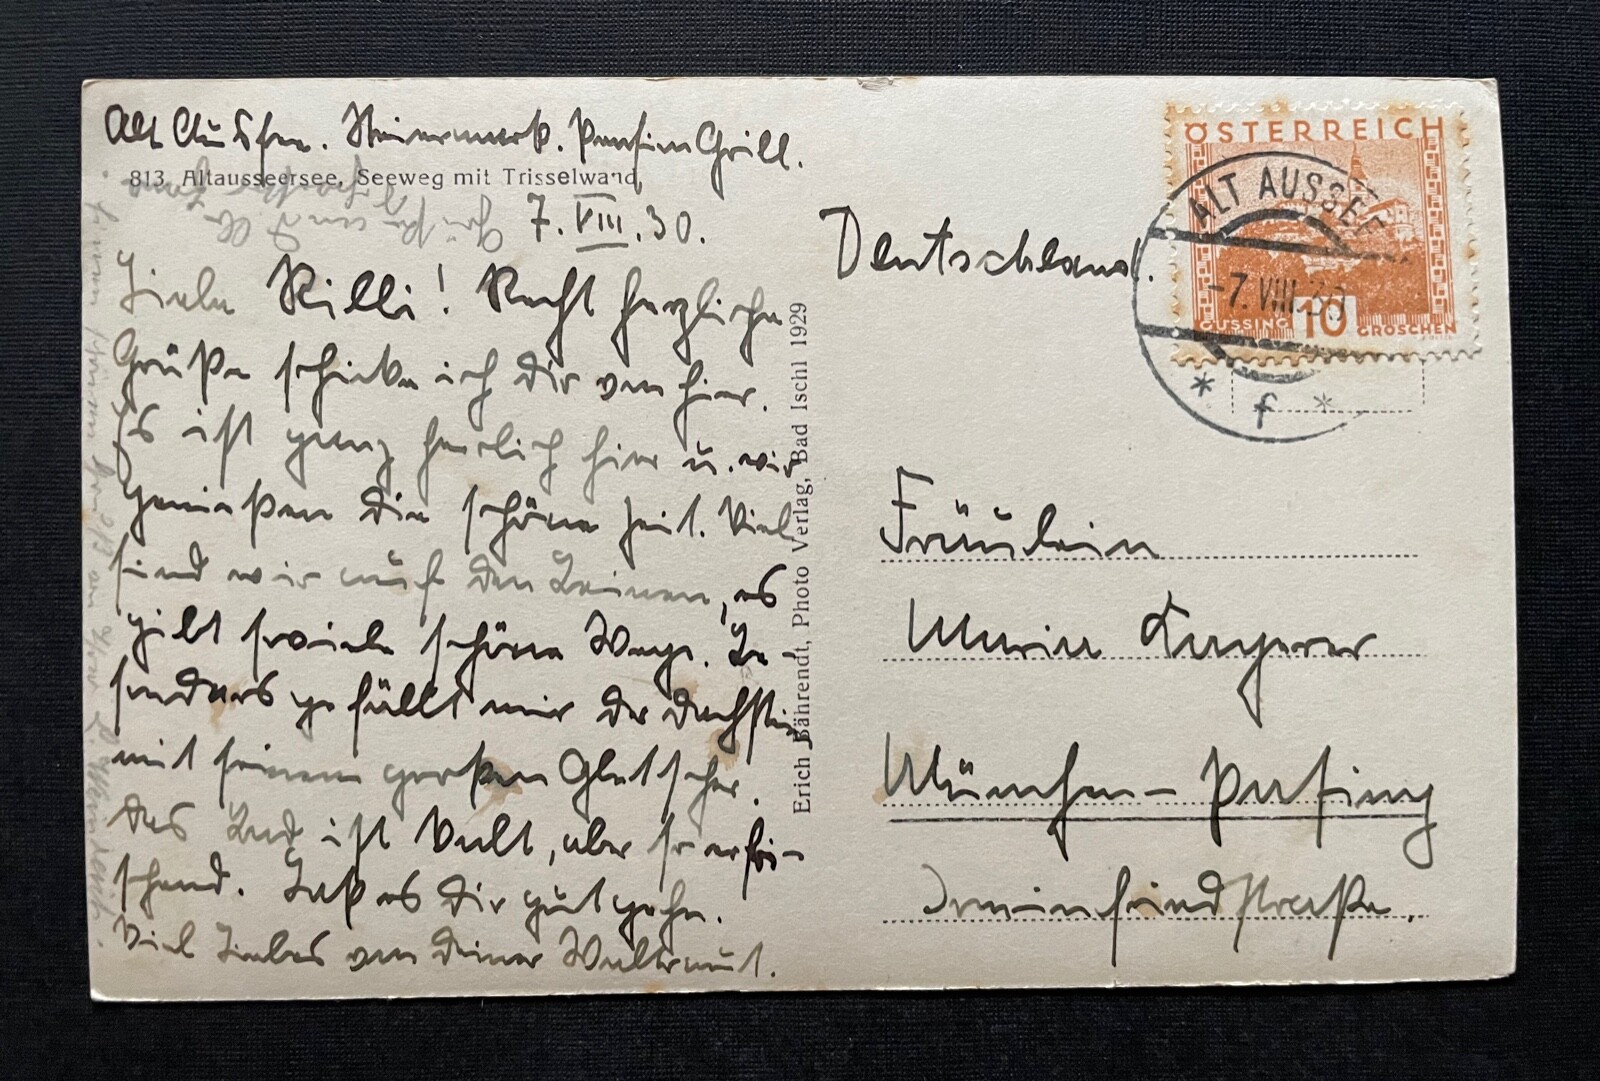 Alt Aussee. Steiermark. Pension Grill.
813 Altausseersee, Seeweg mit Trisselwand
7. VIII. 30.
Liebe Rilli! Recht herzliche
Grüße schicke ich Dir von hier.
Es ist ganz herrlich hier u. wir
genießen die schöne Zeit. Viel
sind wir auf den Beinen, es
gibt so viele schöne Wege. Be-
sonders gefällt mir der Dachstein
mit seinem großen Gletscher.
Das Bad ist kalt, aber so erfri-
schend. Laß es Dir gut gehn.
Viel Liebes von Deiner Waltraut.
Erich Bährendt, Photo Verlag, Bad Ischl 1929
Deutschland.
ÖSTERREICH
GÜSSING 10 GROSCHEN
ALT AUSSEE
-7.VIII.30
* f *
Fräulein
Maria
München - Pasing